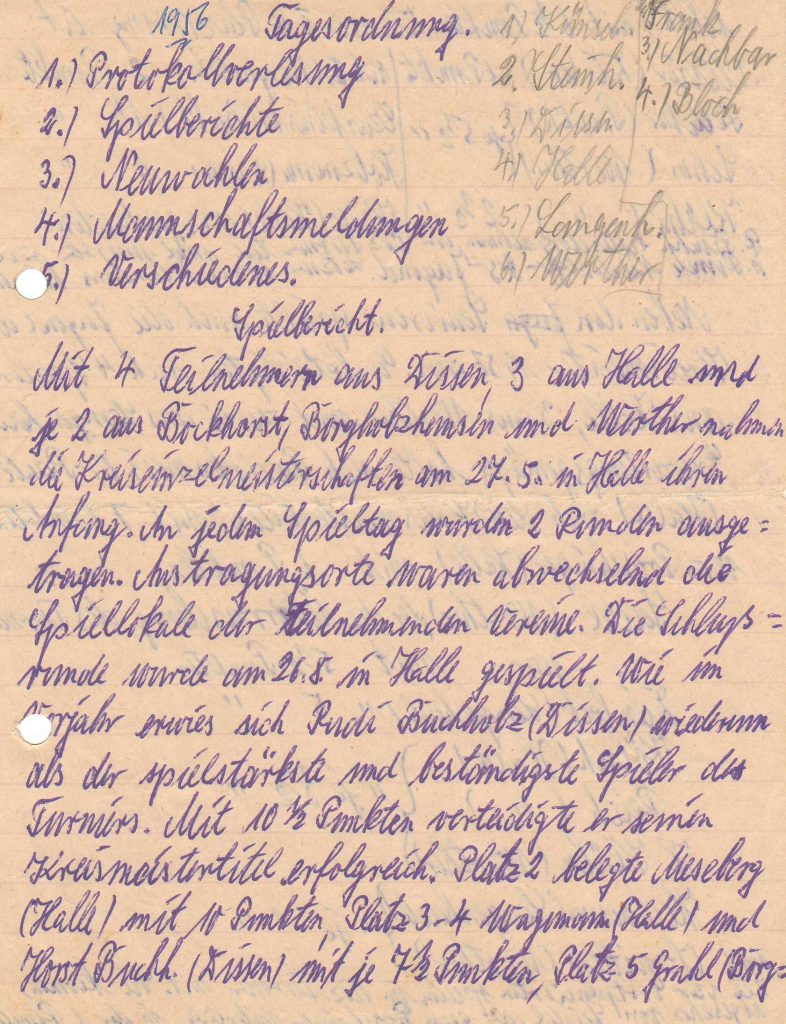 1956 Tagesordnung.
1.) Protokollverlesung
2.) Spielberichte
3.) Neuwahlen
4.) Mannschaftsmeldungen
5.) Verschiedenes.
1) Künsel
2. Steinh.
3) Dissen
4) Halle
5.) Langenh.
6.) Werther
Frank
3) Nachbar
4.) Bloch
Spielbericht.
Mit 4 Teilnehmern aus Dissen, 3 aus Halle und
je 2 aus Bockhorst, Borgholzhausen und Werther nahmen
die Kreiseinzelmeisterschaften am 27.5. in Halle ihren
Anfang. An jedem Spieltag wurden 2 Runden ausge=
tragen. Austragungsorte waren abwechselnd die
Spiellokale der Teilnehmenden Vereine. Die Schluß=
runde wurde am 26.8. in Halle gespielt. Wie im
Vorjahr erwies sich Rudi Buchholz (Dissen) wiederum
als der spielstärkste und beständigste Spieler des
Turniers. Mit 10 ½ Punkten verteidigte er seinen
Kreismeistertitel erfolgreich. Platz 2 belegte Meseberg
(Halle) mit 10 Punkten, Platz 3-4 Wagemann (Halle) und
Horst Buchh. (Dissen) mit je 7½ Punkten, Platz 5 Grahl (Borg=